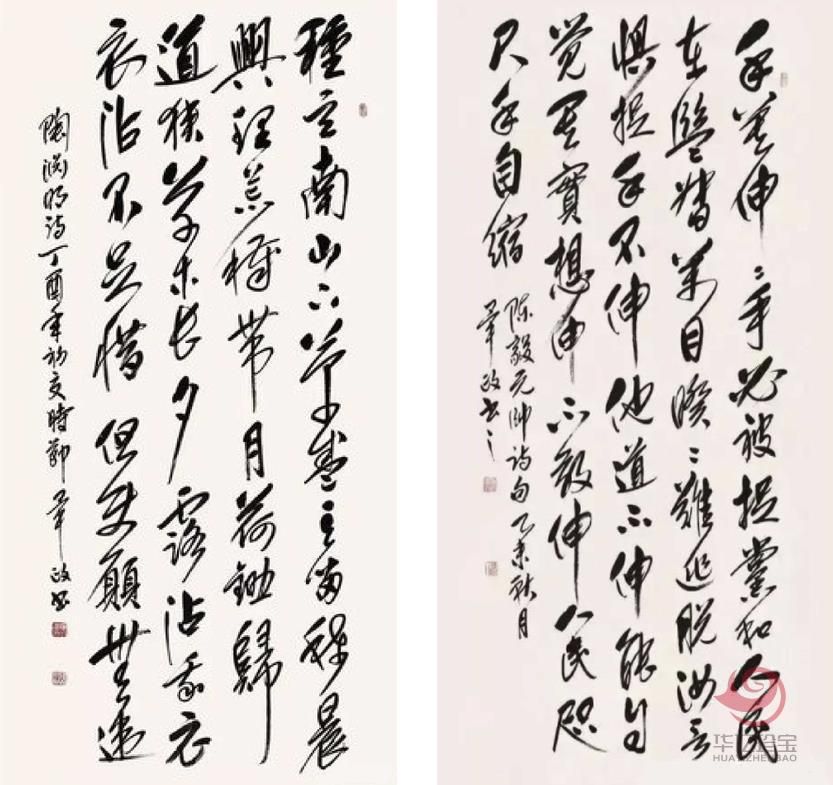 種豆南山下草盛豆苗稀晨
興理荒穢带月荷鋤歸
道狭草木长夕露沾我衣
衣沾不足惜但使願無違
陶渊明诗丁酉年初交時節 政书
手莫伸〻手必被捉黨和人民
在監督萬目睽〻難逃脱汝言
惧捉手不伸他道不伸能自
觉其實想伸不敢伸人民咫
尺手自缩
陈毅元帅诗句乙未秋月
政书之
华夏珍宝
HUAXIAZHENBAO